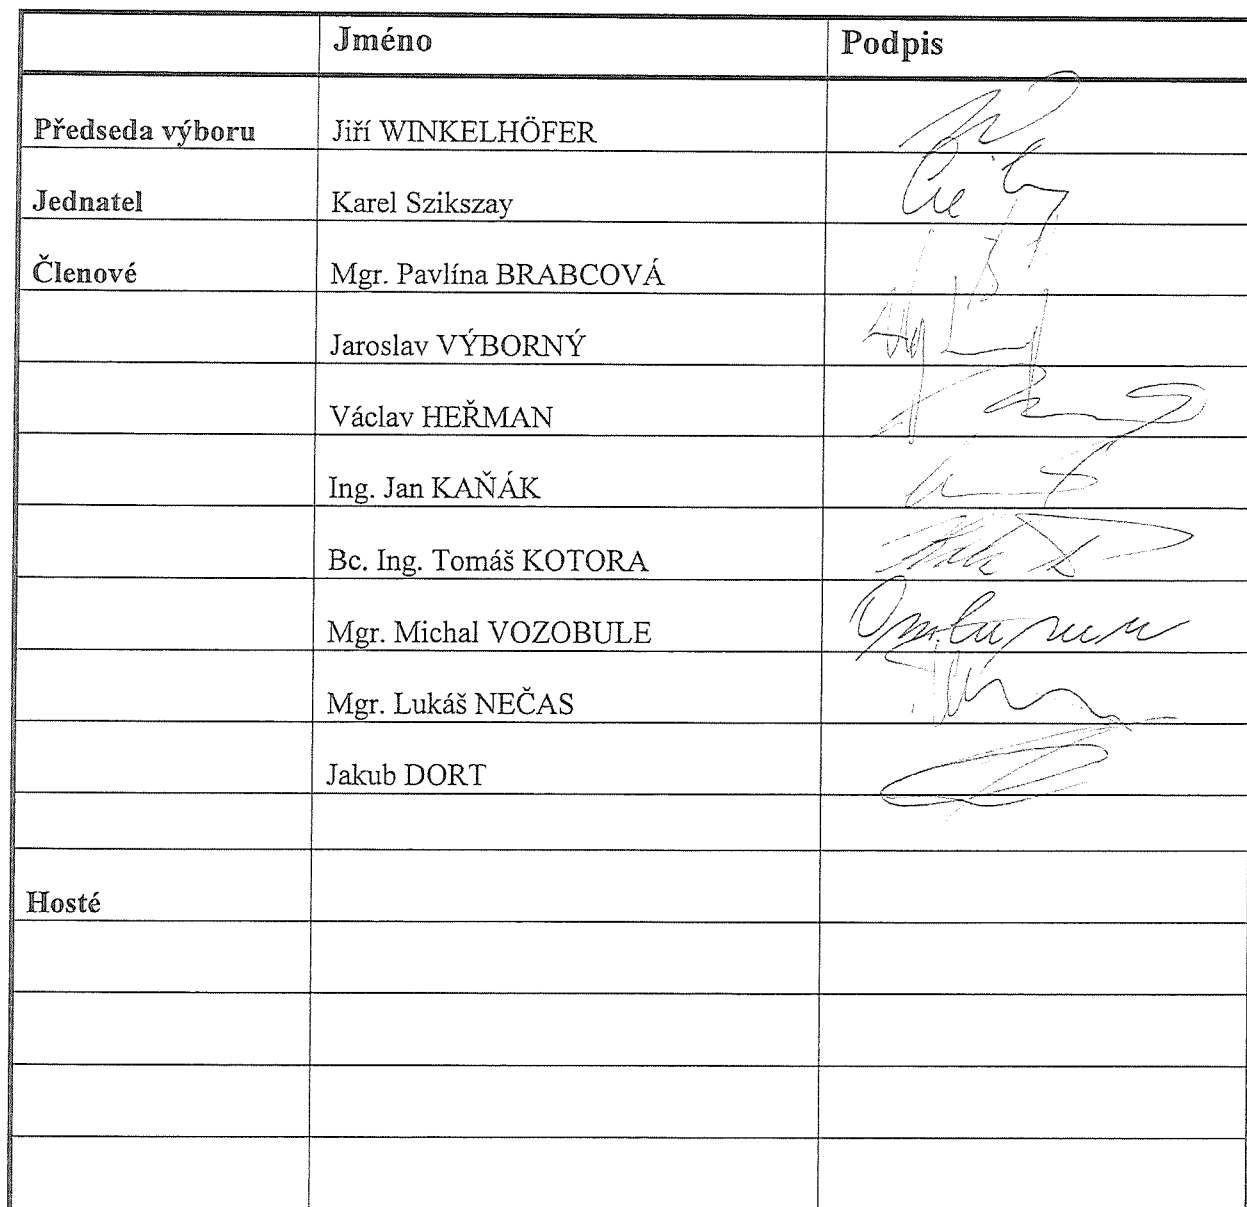 Jméno Podpis
Předseda výboru Jiří WINKELHÖFER
Jednatel Karel Szikszay
Členové Mgr. Pavlína BRABCOVÁ
Jaroslav VÝBORNÝ
Václav HEŘMAN
Ing. Jan KAŇÁK
Bc. Ing. Tomáš KOTORA
Mgr. Michal VOZOBULE
Mgr. Lukáš NEČAS
Jakub DORT
Hosté